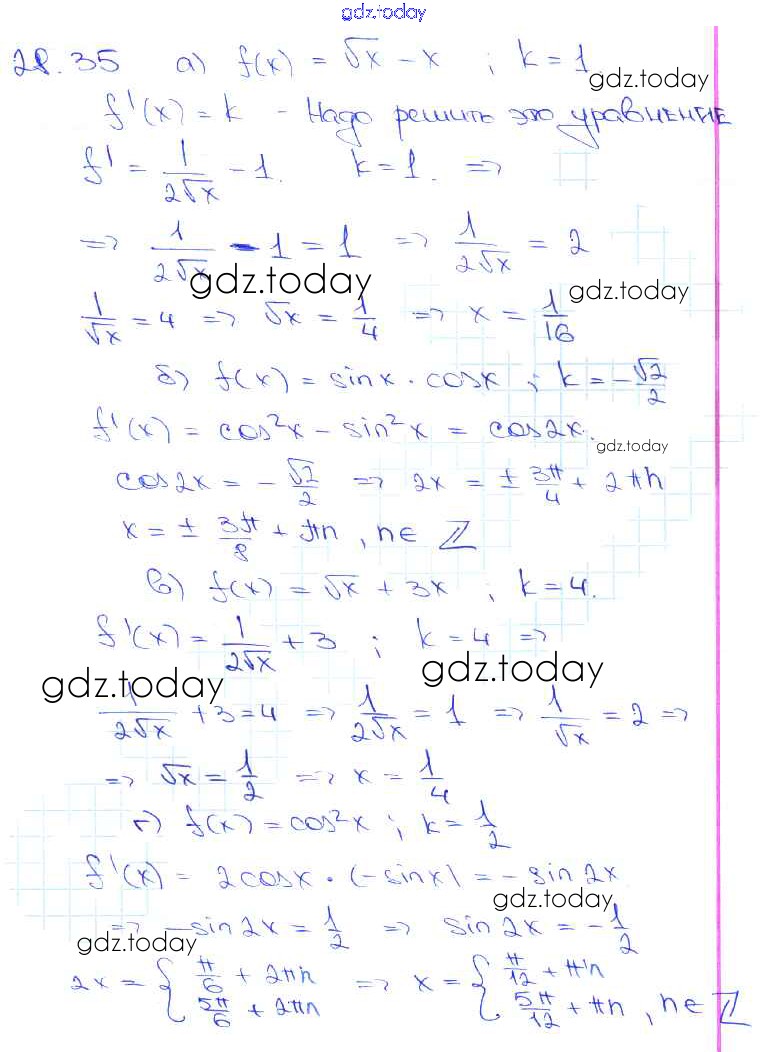 gdz.today
28.35 а) f(x) = √x − x ; k = 1
gdz.today
f'(x) = k - Надо решить это уравнение
f' = 1/(2√x) − 1. k = 1. =>
=> 1/(2√x) − 1 = 1 => 1/(2√x) = 2
gdz.today gdz.today
1/√x = 4 => √x = 1/4 => x = 1/16
б) f(x) = sinx · cosx ; k = −√2/2
f'(x) = cos²x − sin²x = cos2x.
gdz.today
cos2x = −√2/2 => 2x = ± 3π/4 + 2πn
x = ± 3π/8 + πn , n∈ Z
в) f(x) = √x + 3x ; k = 4.
f'(x) = 1/(2√x) + 3 ; k = 4 =>
gdz.today gdz.today
1/(2√x) + 3 = 4 => 1/(2√x) = 1 => 1/√x = 2 =>
=> √x = 1/2 => x = 1/4
г) f(x) = cos²x ; k = 1/2
f'(x) = 2cosx · (−sinx) = − sin2x
gdz.today
=> −sin2x = 1/2 => sin2x = −1/2
gdz.today
2x = { π/6 + 2πn => x = { π/12 + πn
5π/6 + 2πn 5π/12 + πn , n∈ Z